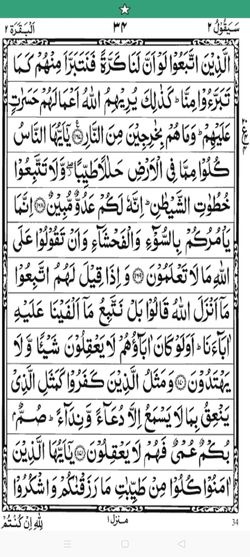 سَيَقُوْلُ ٢ ٣٤ اَلْبَقَرَة ٢
الَّذِيْنَ اتَّبَعُوْا لَوْ اَنَّ لَنَا كَرَّةً فَنَتَبَرَّاَ مِنْهُمْ كَمَا
تَبَرَّءُوْا مِنَّا ؕ كَذٰلِكَ يُرِيْهِمُ اللّٰهُ اَعْمَالَهُمْ حَسَرٰتٍ
عَلَيْهِمْ ؕ وَمَا هُمْ بِخٰرِجِيْنَ مِنَ النَّارِ ﴿١٦٧﴾ يٰۤاَيُّهَا النَّاسُ
كُلُوْا مِمَّا فِى الْاَرْضِ حَلٰلًا طَيِّبًا ۖ وَّلَا تَتَّبِعُوْا
خُطُوٰتِ الشَّيْطٰنِ ؕ اِنَّهٗ لَكُمْ عَدُوٌّ مُّبِيْنٌ ﴿١٦٨﴾ اِنَّمَا
يَاْمُرُكُمْ بِالسُّوْٓءِ وَالْفَحْشَآءِ وَاَنْ تَقُوْلُوْا عَلَى
اللّٰهِ مَا لَا تَعْلَمُوْنَ ﴿١٦٩﴾ وَاِذَا قِيْلَ لَهُمُ اتَّبِعُوْا
مَآ اَنْزَلَ اللّٰهُ قَالُوْا بَلْ نَتَّبِعُ مَآ اَلْفَيْنَا عَلَيْهِ
اٰبَآءَنَا ؕ اَوَلَوْ كَانَ اٰبَآؤُهُمْ لَا يَعْقِلُوْنَ شَيْئًا وَّلَا
يَهْتَدُوْنَ ﴿١٧٠﴾ وَمَثَلُ الَّذِيْنَ كَفَرُوْا كَمَثَلِ الَّذِىْ
يَنْعِقُ بِمَا لَا يَسْمَعُ اِلَّا دُعَآءً وَّنِدَآءً ؕ صُمٌّۢ
بُكْمٌ عُمْىٌ فَهُمْ لَا يَعْقِلُوْنَ ﴿١٧١﴾ يٰۤاَيُّهَا الَّذِيْنَ
اٰمَنُوْا كُلُوْا مِنْ طَيِّبٰتِ مَا رَزَقْنٰكُمْ وَاشْكُرُوْا
لِلّٰهِ اِنْ كُنْتُمْ منزل ١ 34